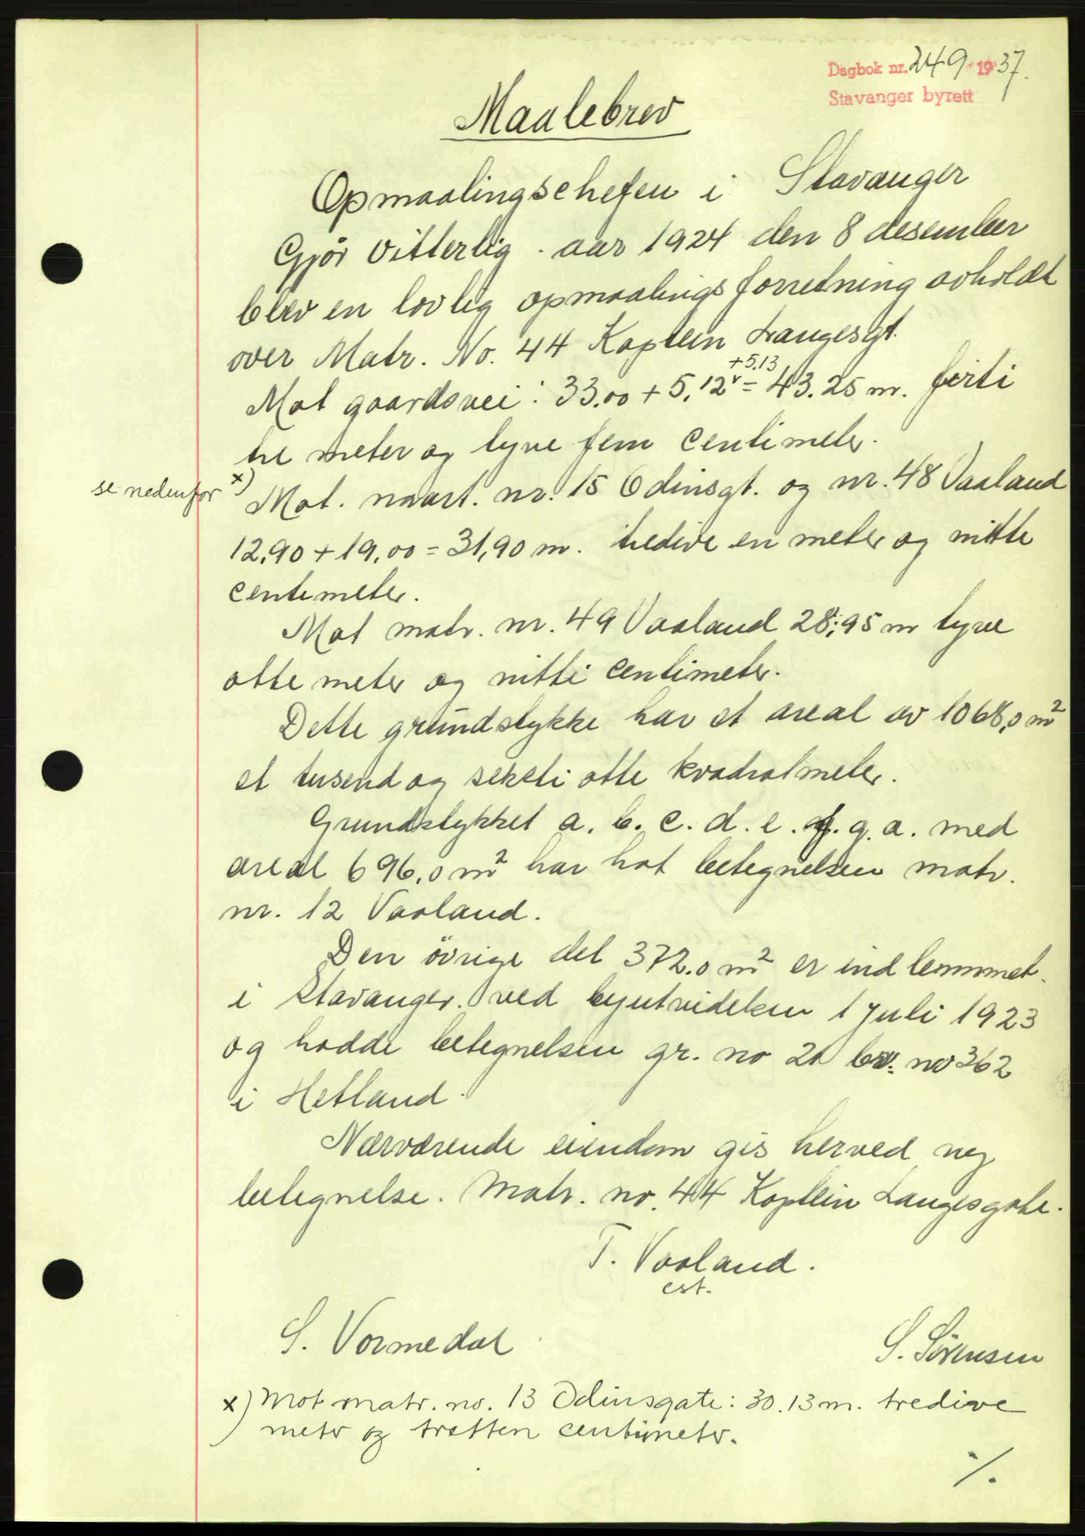 Dagbok nr. 249 1937.
Stavanger byrett
Maalebrev
Opmaalingschefen i Stavanger
Gjør vitterlig. aar 1924 den 8 desember
blev en lovlig opmaalingsforretning avholdt
over Matr. No. 44 Kaptein Langesgt.
+5,13
Mot gaardsvei: 33,00 + 5,12 = 43.25 m. førti
tre meter og tyve fem centimeter.
se nedenfor x)
Mot. matr. nr. 15 Odinsgt. og nr. 48 Vaaland
12,90 + 19,00 = 31,90 m. tredive en meter og nitti
centimeter.
Mot matr. nr. 49 Vaaland 28,95 m tyve
otte meter og nitti centimeter.
Dette grundstykke har et areal av 1068,0 m²
et tusend og seksti otte kvadratmeter.
Grundstykket a. b. c. d. e. f. g. a. med
areal 696,0 m² har hat betegnelsen matr.
nr. 12 Vaaland.
Den övrige del 372.0 m² er indlemmet
i Stavanger ved byutvidelsen 1 juli 1923
og hadde betegnelsen gr. no 21 brv. no 362
i Hetland.
Nærværende eiendom gis herved ny
betegnelse. Matr. no. 44 Kaptein Langesgate.
T. Vaaland.
est.
S. Vormedal
S. Sörensen
x) Mot matr. no. 13 Odinsgate: 30.13 m. tredive
meter og tretten centimeter.
%.